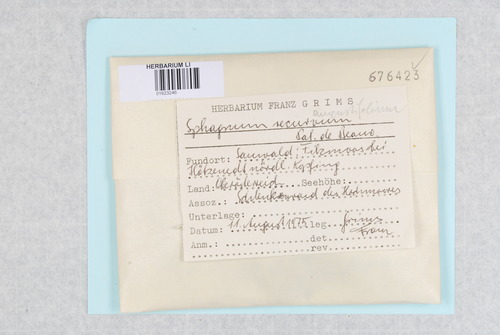 HERBARIUM LI
676423
HERBARIUM FRANZ GRIMS
Sphagnum recurvum
Pal. de Beauv.
Fundort: Sauwald: bei
nördl. Kopfing
Land: Oberösterreich Seehöhe:
Assoz. des Hochmoores
Unterlage:
Datum: 11. August 1975 leg. Grims
Franz
Anm.: det.
rev.